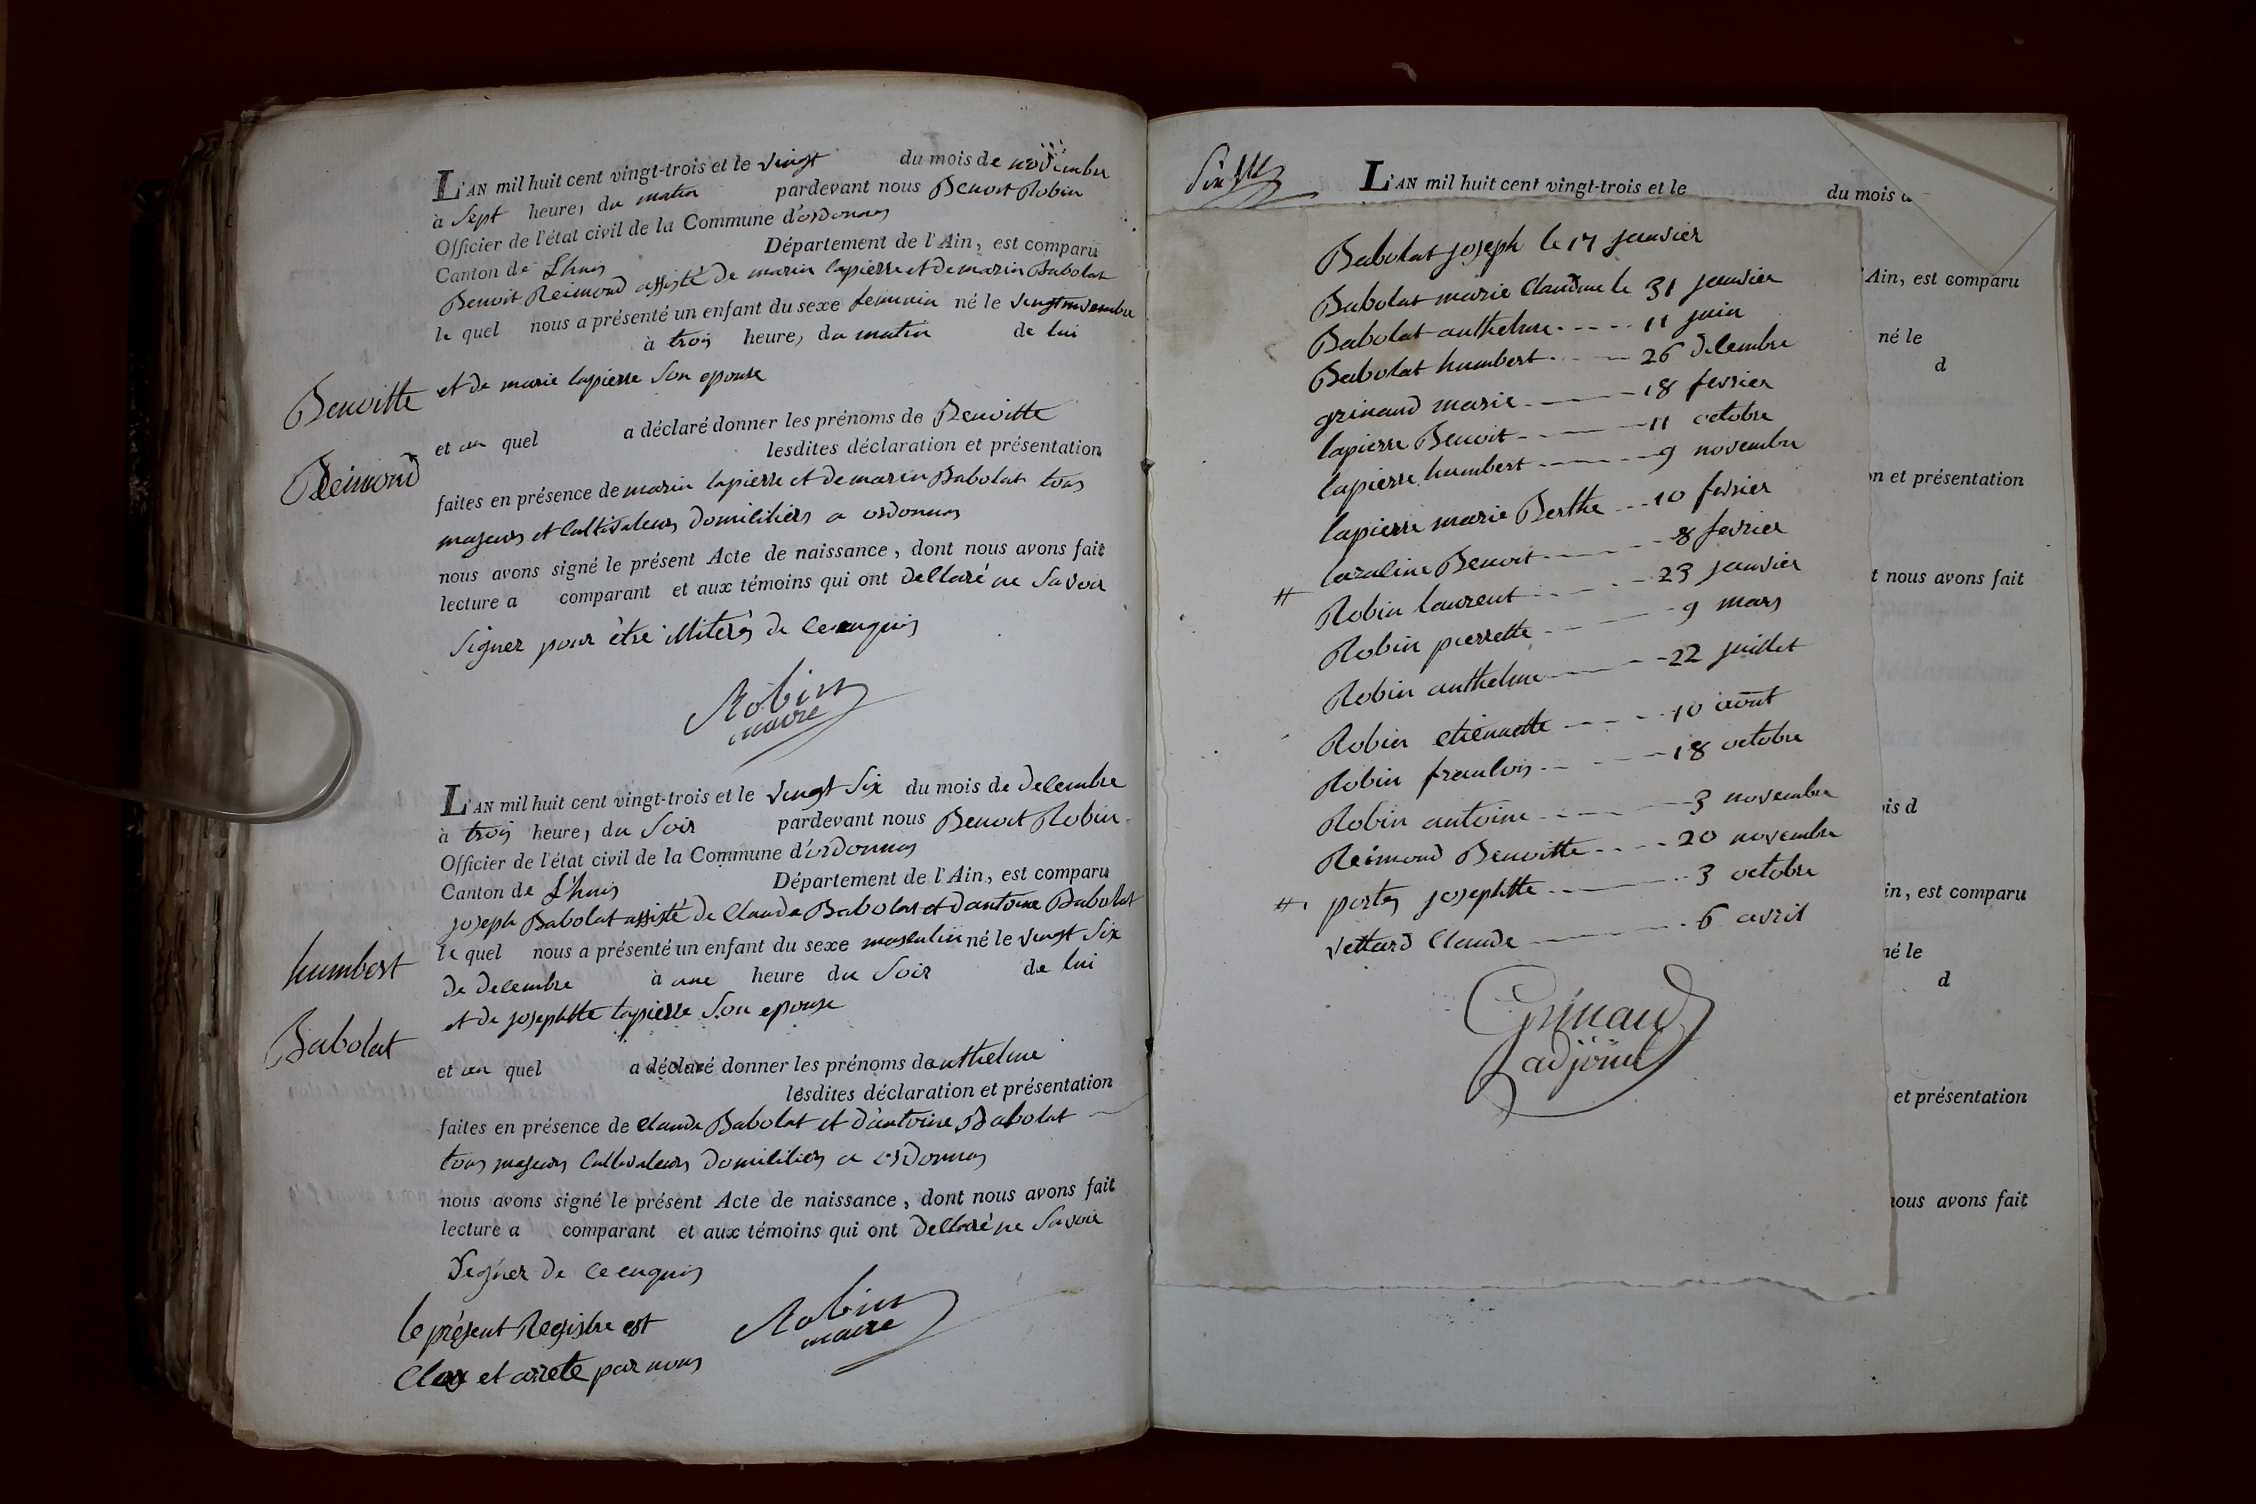 L'AN mil huit cent vingt-trois et le vingt du mois de novembre
à sept heures du matin pardevant nous Benoit Robin
Officier de l'état civil de la Commune d'ordonnas
Canton de Lhuis Département de l'Ain, est comparu
Benoit Reimond assisté de marin lapierre et de marin Babolat
le quel nous a présenté un enfant du sexe feminin né le vingt novembre
à trois heures du matin de lui
et de marie lapierre son epouse
Benoitte
Reimond
et au quel a déclaré donner les prénoms de Benoitte
lesdites déclaration et présentation
faites en présence de marin lapierre et de marin Babolat tous
majeurs et cultivateurs domiciliers a ordonnas
nous avons signé le présent Acte de naissance, dont nous avons fait
lecture a comparant et aux témoins qui ont declaré ne savoir
signer pour être iliterés de ce enquis
Robin
maire
L'AN mil huit cent vingt-trois et le vingt six du mois de decembre
à trois heures du soir pardevant nous Benoit Robin
Officier de l'état civil de la Commune d'ordonnas
Canton de Lhuis Département de l'Ain, est comparu
joseph Babolat assisté de Claude Babolat et d'antoine Babolat
le quel nous a présenté un enfant du sexe masculin né le vingt six
de decembre à une heure du soir de lui
et de josephtte lapierre son epouse
humbert
Babolat
et au quel a déclaré donner les prénoms de anthelme
lesdites déclaration et présentation
faites en présence de Claude Babolat et d'antoine Babolat
tous majeurs cultivateurs domiciliers a ordonnas
nous avons signé le présent Acte de naissance, dont nous avons fait
lecture a comparant et aux témoins qui ont declaré ne savoir
signer de ce enquis
le présent Registre est
Clos et arrete par nous
Robin
maire
L'AN mil huit cent vingt-trois et le du mois d
Babolat joseph le 17 janvier
Babolat marie Claudine le 31 janvier
Babolat anthelme 11 juin
Babolat humbert 26 decembre
grinand marie 18 fevrier
lapierre Benoit 11 octobre
lapierre humbert 9 novembre
lapierre marie Berthe 10 fevrier
laraline Benoit 8 fevrier
# Robin laurent 23 janvier
Robin pierrette 9 mars
Robin anthelme 22 juillet
Robin etiennette 10 août
Robin francois 18 octobre
Robin antoine 3 novembre
Reimond Benoitte 20 novembre
# portes josephtte 3 octobre
vettard Claude 6 avril
Grinand
adjoint
'Ain, est comparu
né le
d
n et présentation
t nous avons fait
is d
in, est comparu
né le
d
et présentation
nous avons fait